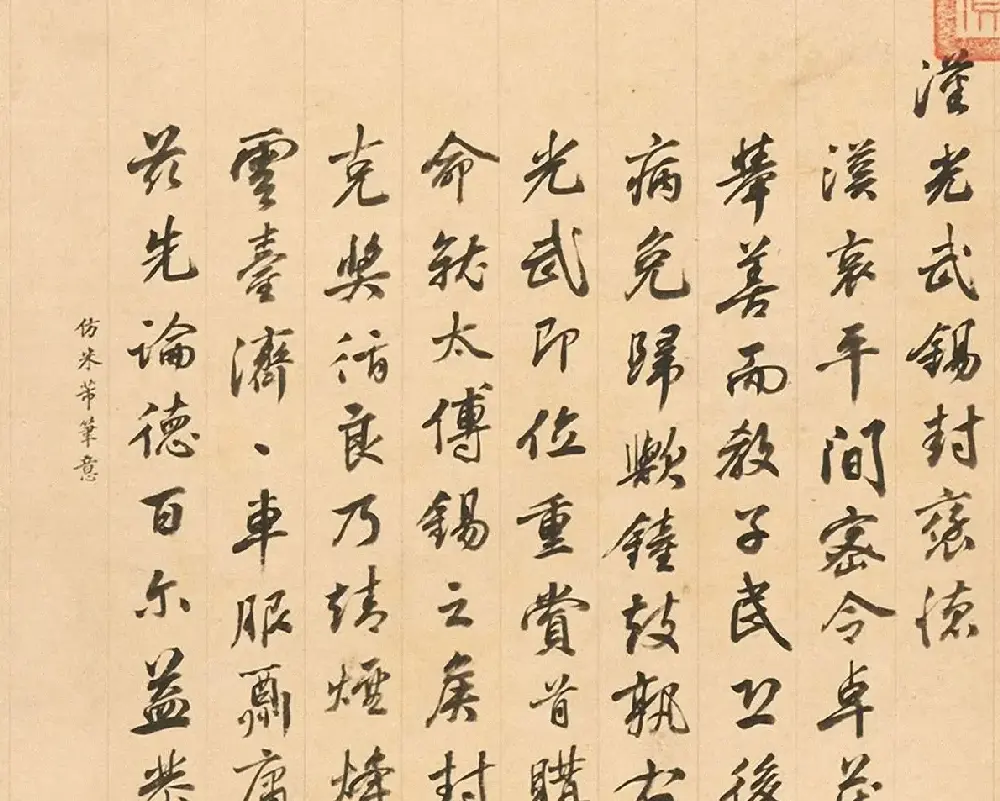 漢光武錫封褒德
漢哀平間密令卓茂
舉善而教子民
病免歸歟鐘鼓執
光武即位重賞首購
命就太傅錫之侯封
克奬循良乃靖煙烽
雲臺濟、車服彌庸
茲先論德百爾益恭
仿米芾筆意